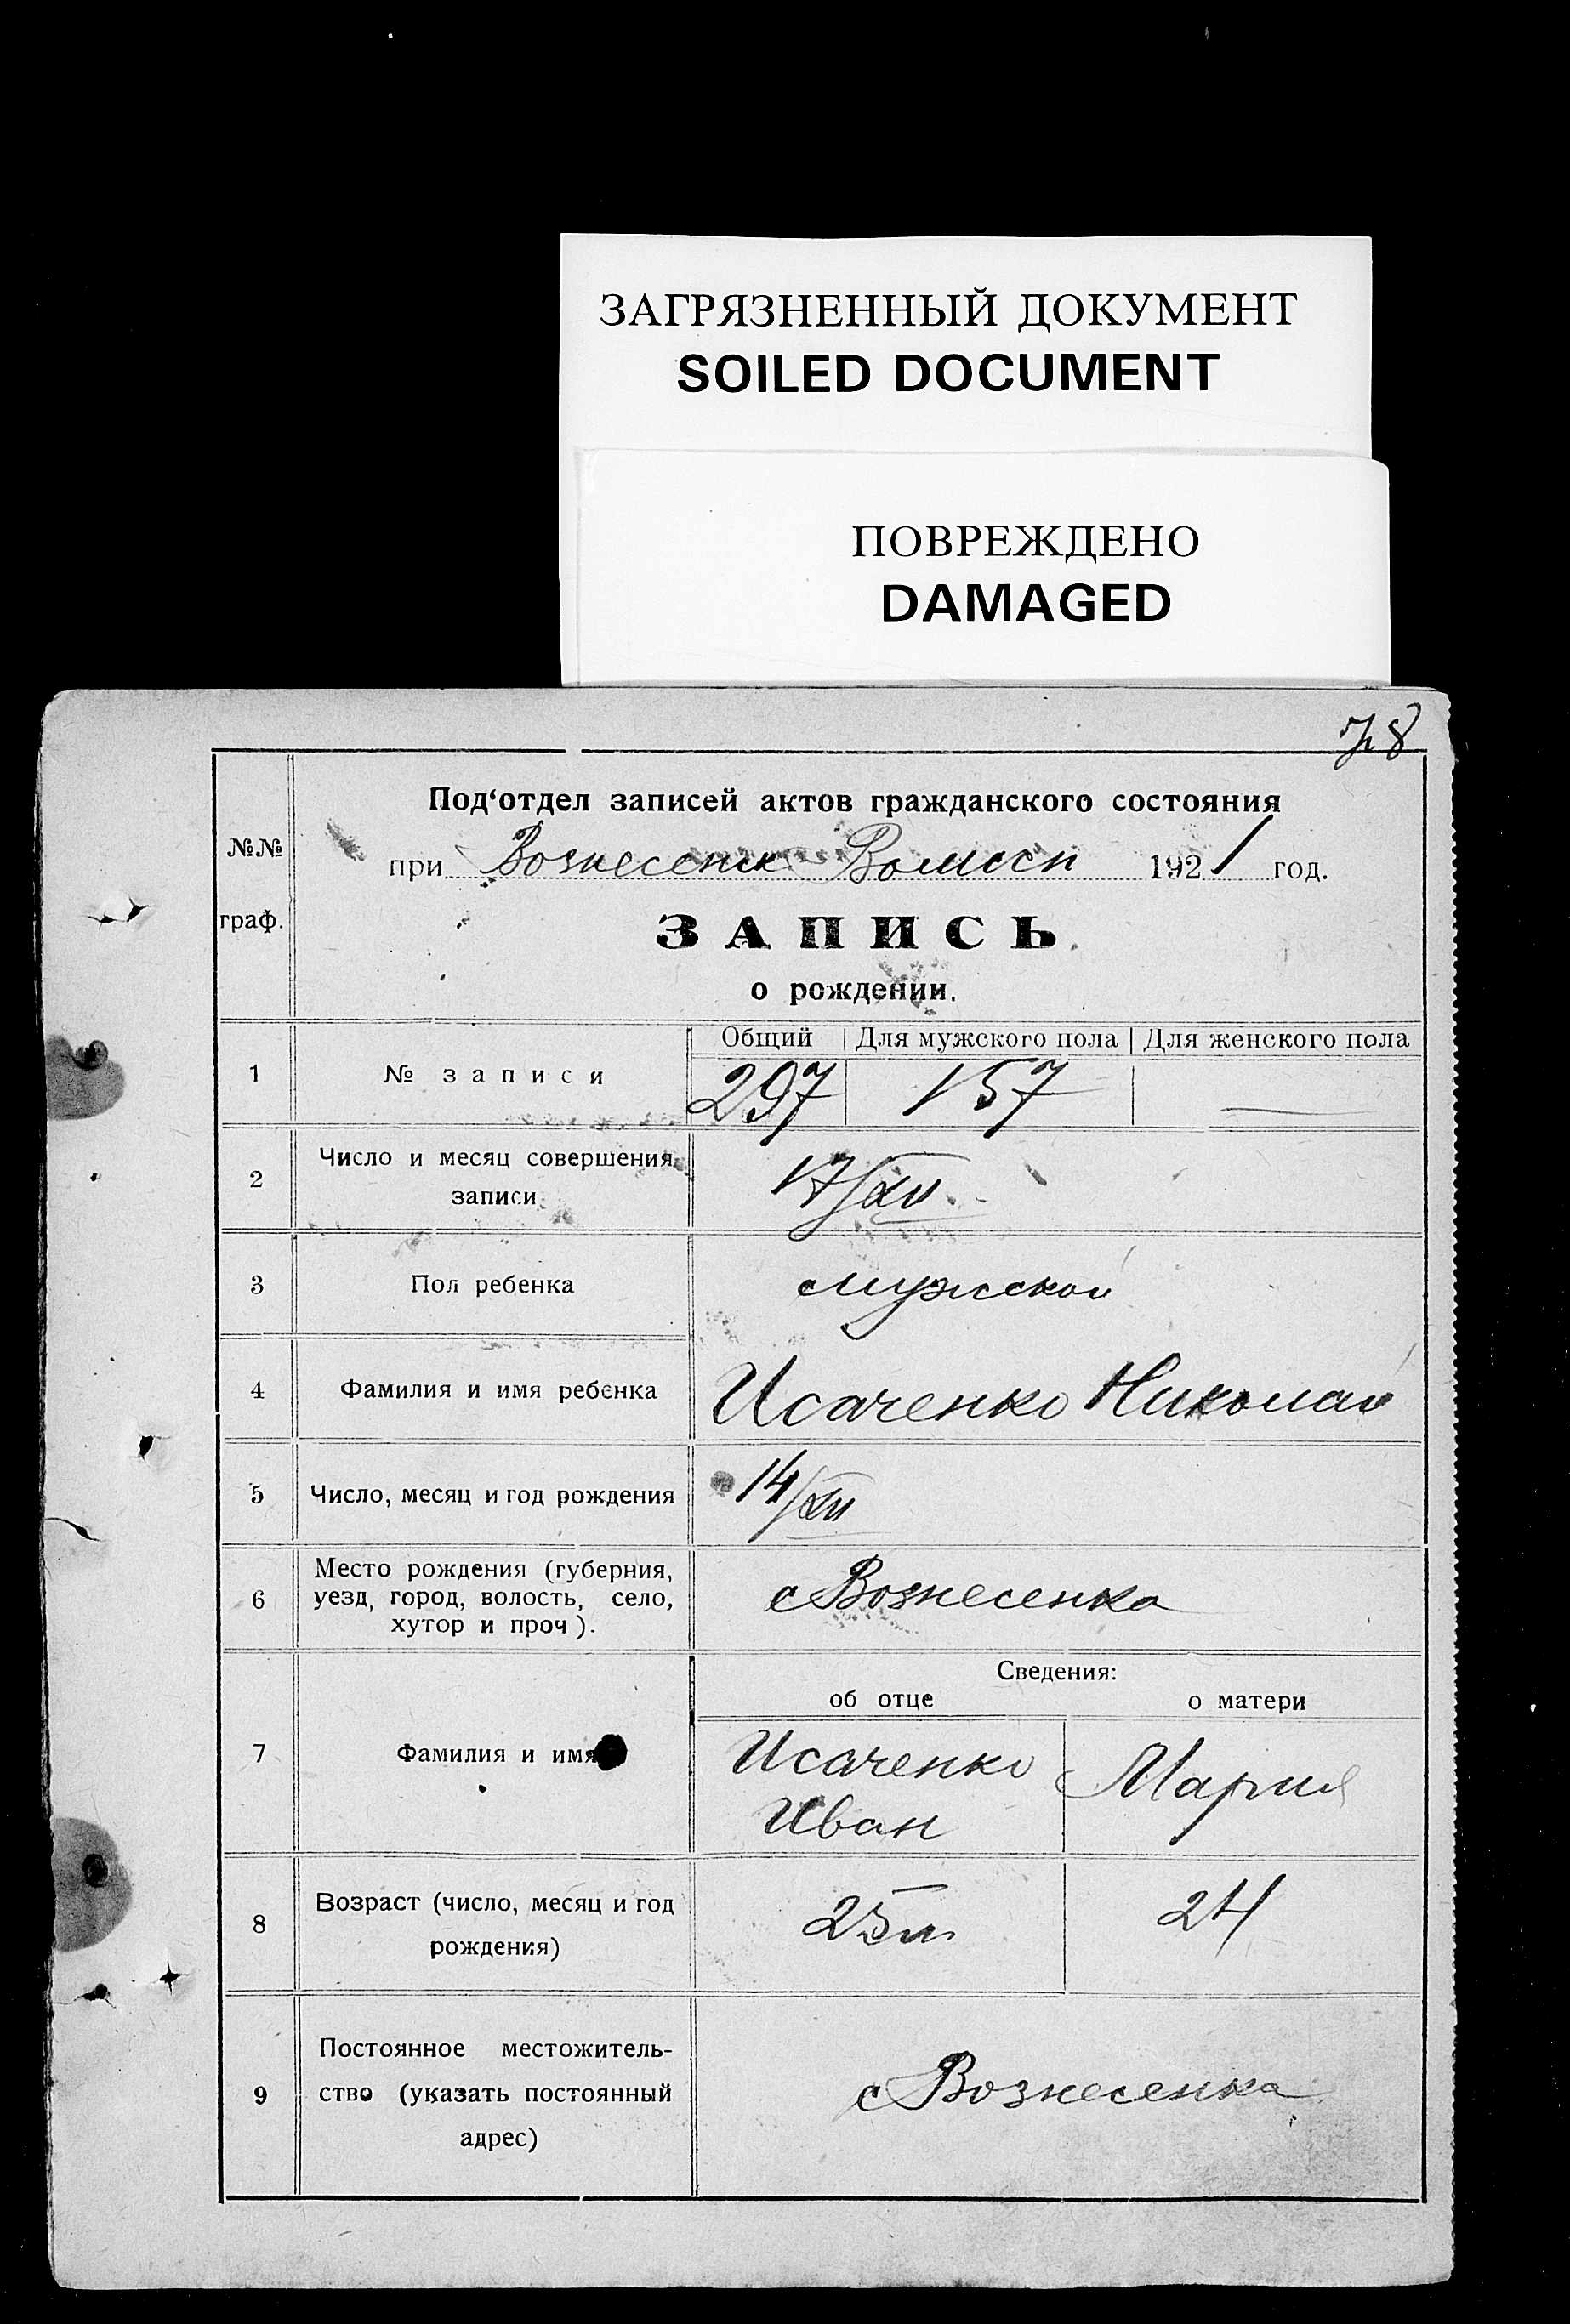 ЗАГРЯЗНЕННЫЙ ДОКУМЕНТ
SOILED DOCUMENT
ПОВРЕЖДЕНО
DAMAGED
78
Под‘отдел записей актов гражданского состояния
№№ граф.
при Вознесенск Волисп 1921 год.
ЗАПИСЬ
о рождении.
Общий Для мужского пола Для женского пола
1 № записи 297 157 —
2 Число и месяц совершения
записи 17/XII.
3 Пол ребенка мужской
4 Фамилия и имя ребенка Исаченко Николай
5 Число, месяц и год рождения 14/XII
6 Место рождения (губерния,
уезд, город, волость, село,
хутор и проч). с Вознесенка
Сведения:
об отце о матери
7 Фамилия и имя Исаченко Мария
Иван
8 Возраст (число, месяц и год
рождения) 25 л 24
9 Постоянное местожитель-
ство (указать постоянный
адрес) с Вознесенка